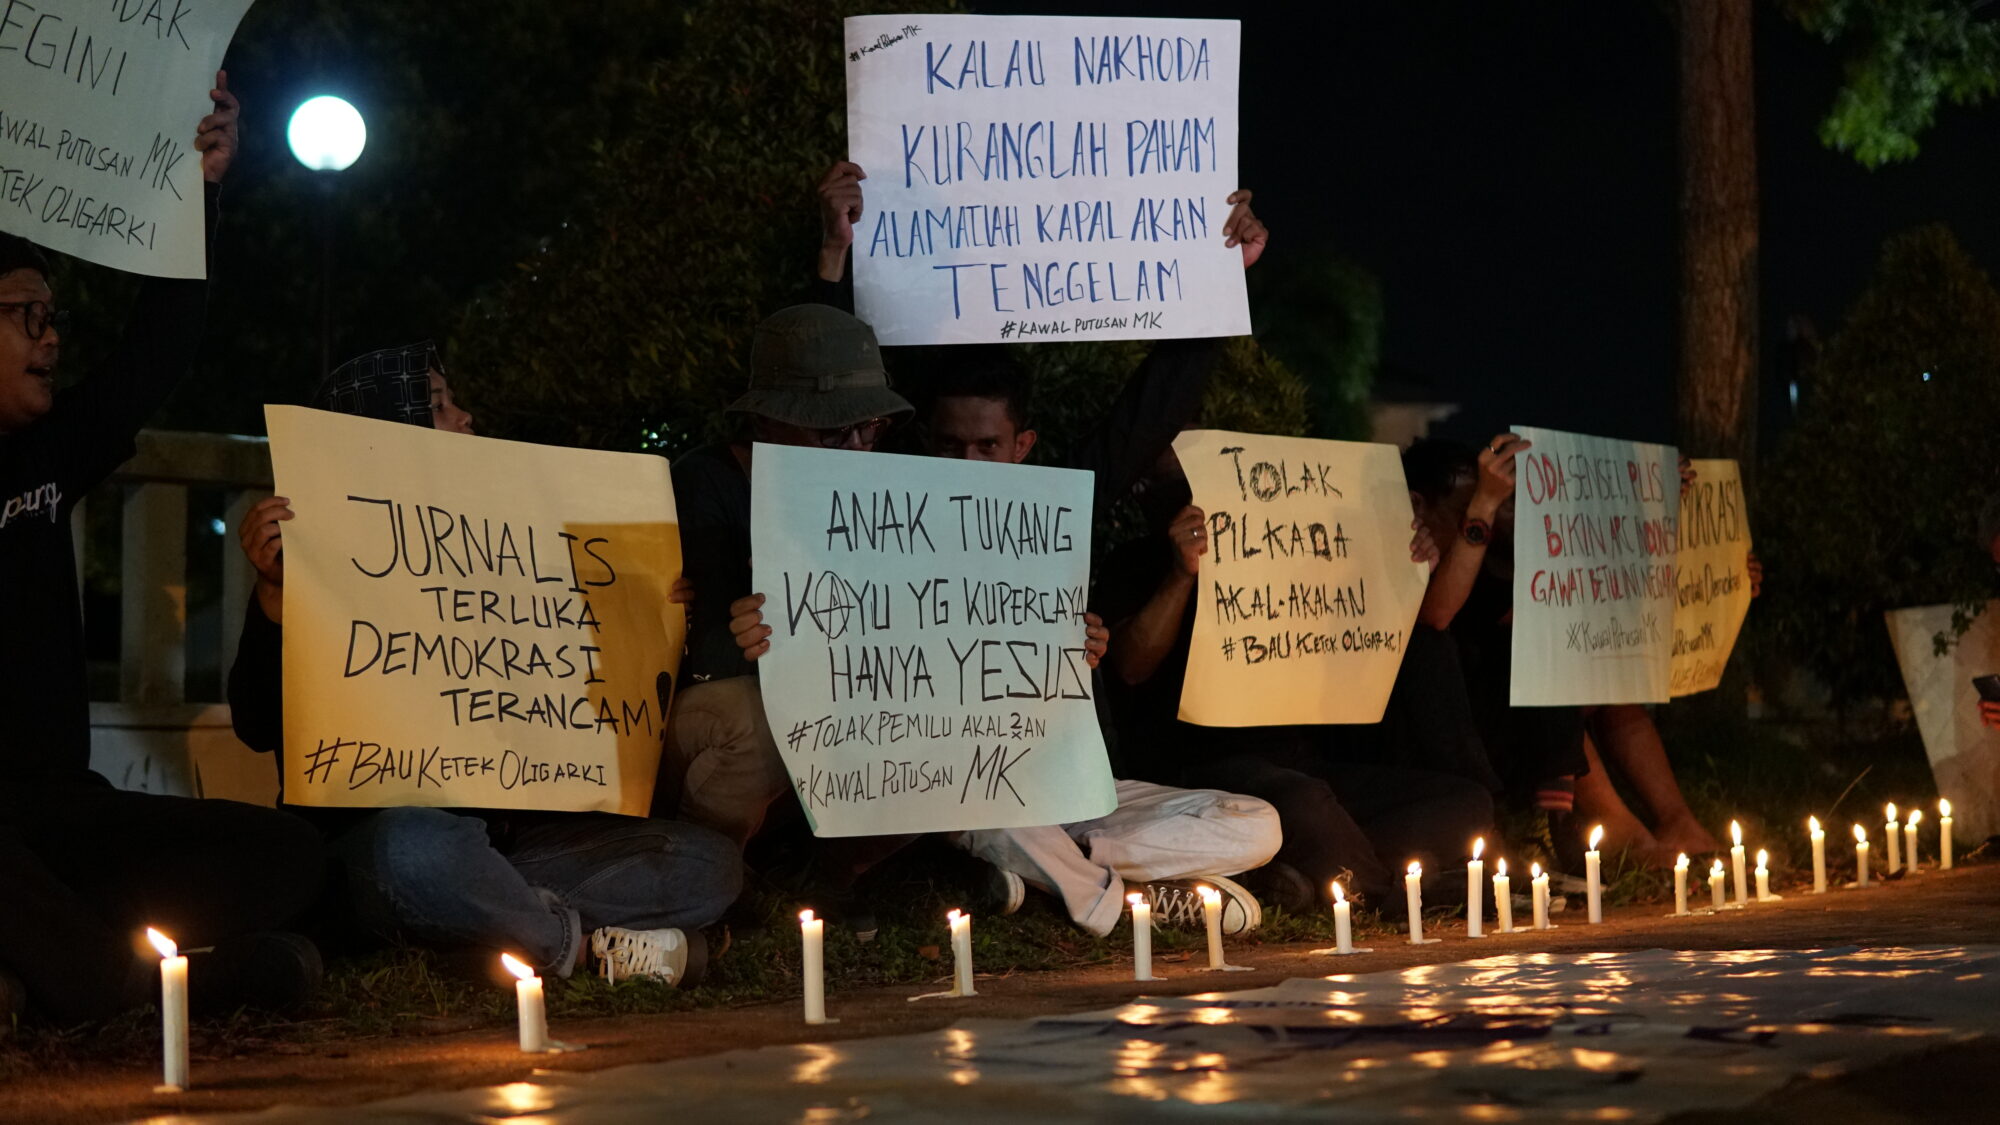 EGINI
PUTUSAN MK
OLIGARKI
KALAU NAKHODA
KURANGLAH PAHAM
ALAMATLAH KAPAL AKAN
TENGGELAM
#KAWAL PUTUSAN MK
JURNALIS
TERLUKA
DEMOKRASI
TERANCAM!
#BAU KETEK OLIGARKI
ANAK TUKANG
KAYU YG KUPERCAYA
HANYA YESUS
#TOLAK PEMILU AKAL2XAN
#KAWAL PUTUSAN MK
TOLAK
PILKADA
AKAL-AKALAN
#BAU KETEK OLIGARKI
ODA SENSEI, PLIS
BIKIN ARC INDONESIA
GAWAT BETUL INI NEGARA
#KawalPutusanMK